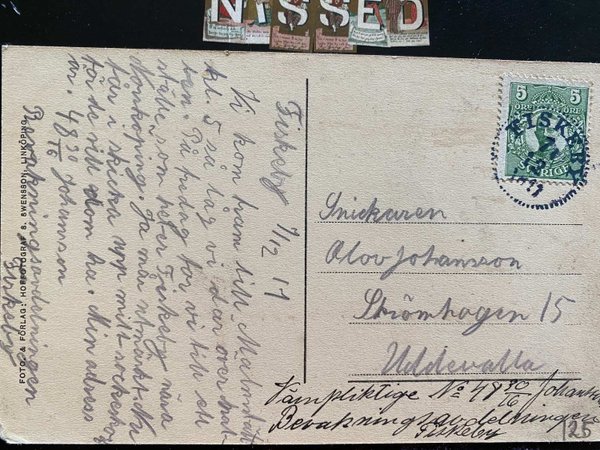 NISSED
Fiskeby 7/12 17
Vi kom fram till Malmslätt
kl. 5 så låg vi där över nat-
ten. På fredag for vi till ett
ställe som heter Fiskeby nära
Norrköping. Ja mår utmärkt. Nu
får i skicka upp mitt sockerkort
för de vill dom ha. Min adress
är. 48 30/16 Johansson
Bevakningsavdelningen
Fiskeby
FOTO. & FÖRLAG: HOFFOTOGRAF S. SWENSSON, LINKÖPING.
5 5
ÖRE ÖRE
SVERIGE
FISKEBY
7 12 1917
Snickaren
Olov Johansson
Strömhagen 15
Uddevalla
Vämpliktige No 48 30/16 Johansson
Bevakningsavdelningen
Fiskeby
125